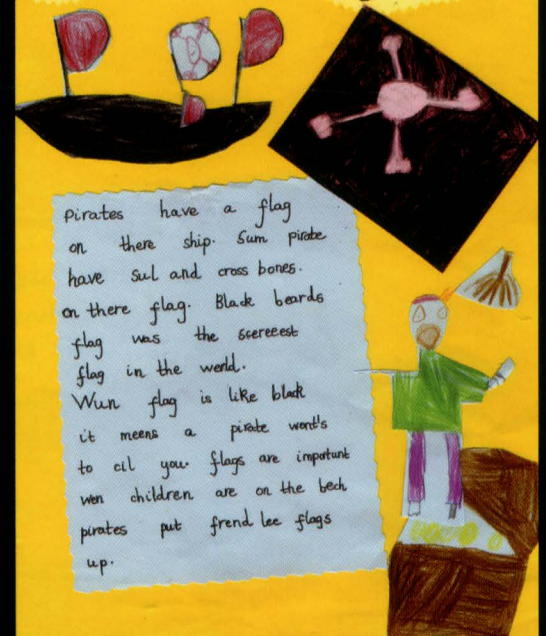 Pirates have a flag
on there ship. Sum pirate
have sul and cross bones.
on there flag. Black beards
flag was the scereeest
flag in the werld.
Wun flag is like black
it meens a pirate wont's
to cil you. flags are important
wen children are on the bech
pirates put frend lee flags
up.